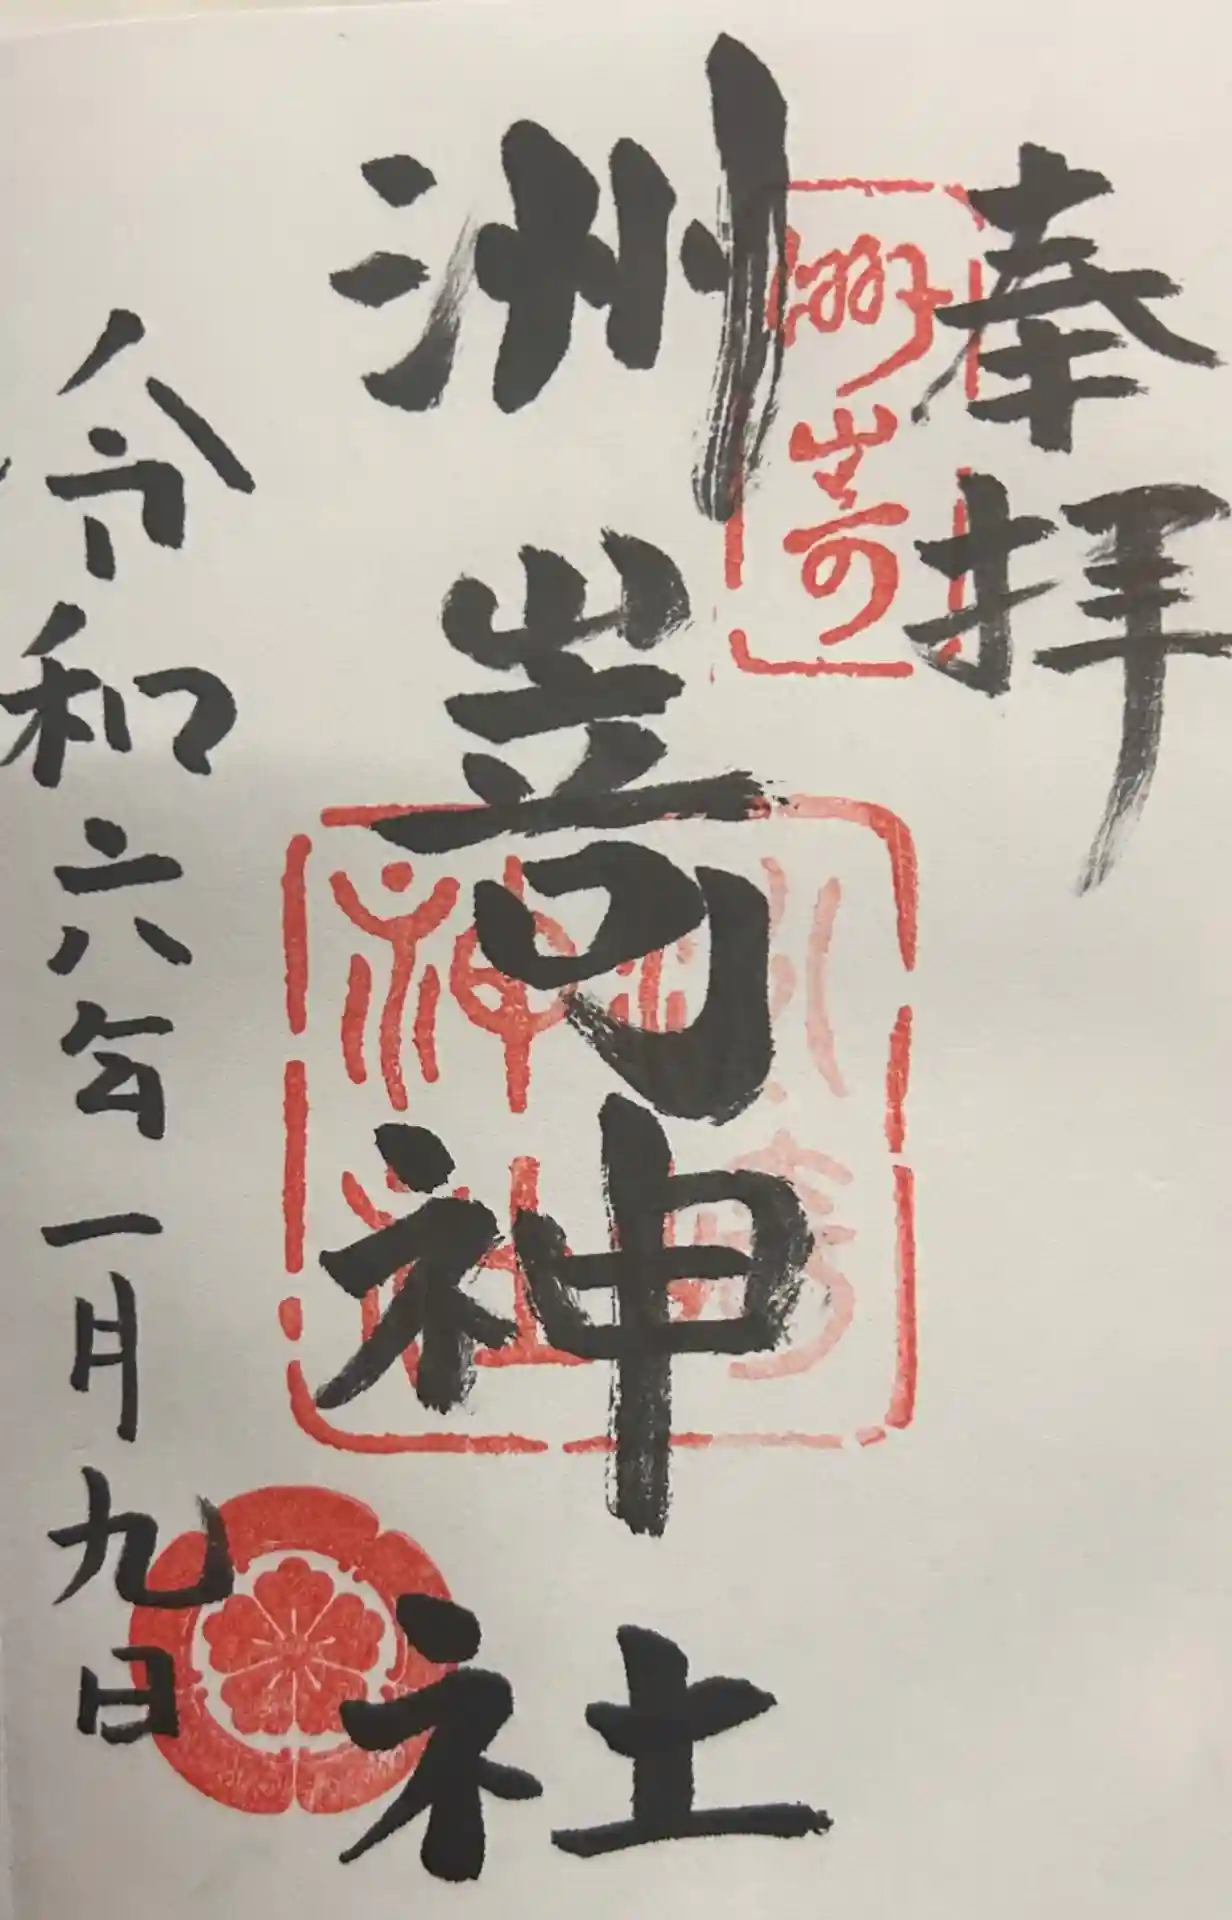 奉拝
洲嵜
洲嵜神社
洲嵜神社
令和六年一月九日